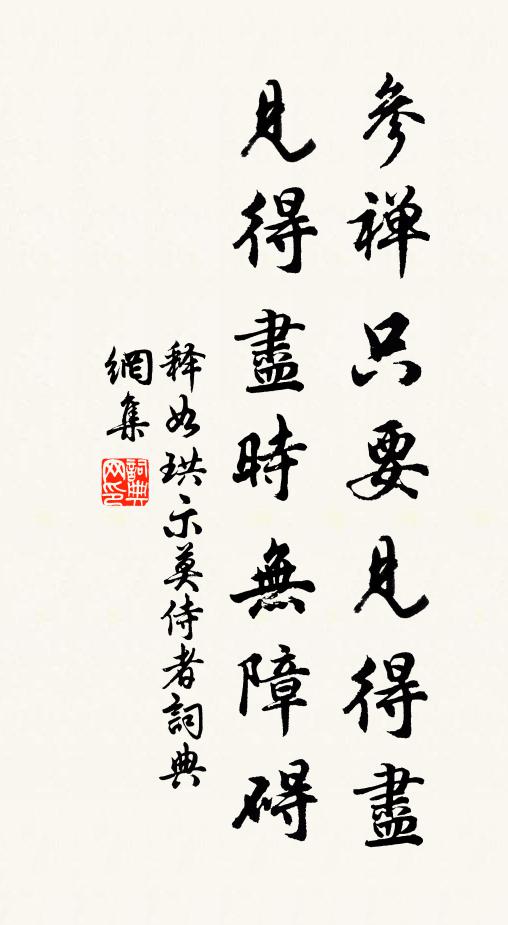 參禅只要見得盡
見得盡時無障碍
释如珙示莫侍者詞典
網集
詞典网印